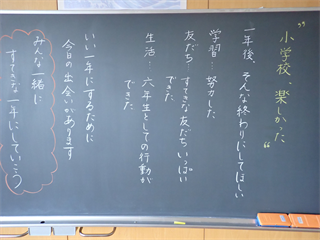 "小学校、楽しかった"
一年後、そんな終わりにしてほしい
学習…努力した
友だち…すてきな友だちいっぱい
できた
生活…六年生としての行動が
できた
いい一年にするために
今日の出会いがあります
みんな一緒に
すてきな一年にしていこう